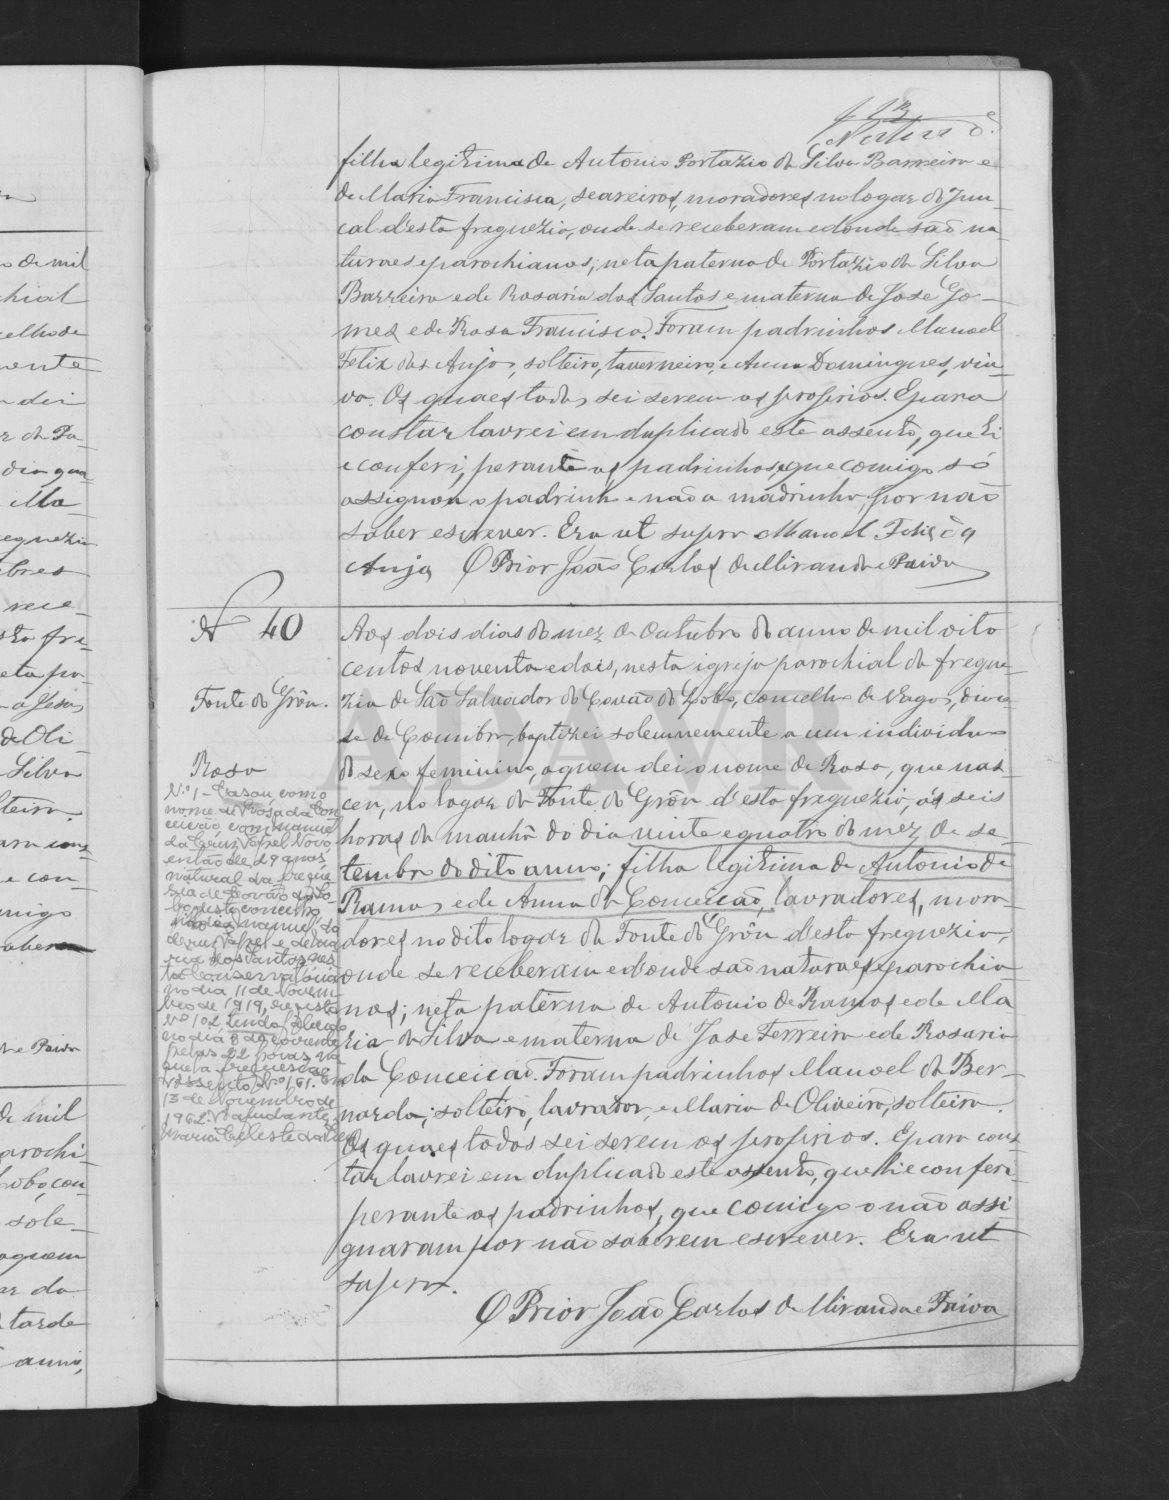 filha legitima de Antonio Portazio da Silva Barreira e
de Maria Francisca, seareiros, moradores no logar do Jun-
cal d'esta freguezia, onde se receberam e donde são na-
turaes e parochianos; neta paterna de Portazio da Silva
Barreira e de Rosaria dos Santos e materna de José Go-
mes e de Rosa Francisca. Foram padrinhos Manoel
Felix dos Anjos, solteiro, taverneiro, e Anna Domingues, viu-
va. Os quaes todos sei serem os proprios. E para
constar lavrei em duplicado este assento, que li
e conferi, perante os padrinhos, que comigo só
assignou o padrinho e não a madrinha, por não
saber escrever. Era ut supra Manoel Felix dos
Anjos O Prior João Carlos de Miranda e Paiva
Nº 40
Fonte do Grôu.
Rosa
Aos dois dias do mez de Outubro do anno de mil oito
centos noventa e dois, nesta igreja parochial da fregue-
zia de São Salvador do Covão do Lobo, concelho de Vagos, dioce-
se de Coimbra, baptizei solemnemente a um individuo
do sexo feminino, a quem dei o nome de Rosa, que nas-
ceu, no logar da Fonte do Grôu d'esta freguezia, ás seis
horas da manhã do dia vinte e quatro do mez de se-
tembro do dito anno; filha legitima de Antonio de
Ramos e de Anna da Conceicão, lavradores, mora-
dores no dito logar da Fonte do Grôu d'esta freguezia,
onde se receberam e d'onde são naturaes e parochia
nos; neta paterna de Antonio de Ramos e de Ma
ria da Silva e materna de Jose Ferreira e de Rosaria
da Conceicão. Foram padrinhos Manoel da Ber-
narda, solteiro, lavrador, e Maria de Oliveira, solteira.
Os quaes todos sei serem os proprios. E para cons
tar lavrei em duplicado este assento, que li e conferi
perante os padrinhos, que comigo o não assi
gnaram por não saberem escrever. Era ut
supra.
O Prior João Carlos de Miranda e Paiva
N.º 1 - Casou com o
nome de Rosa da Con
ceição, com Manuel
da Cruz Novo,
então de 29 anos
natural da fregue
zia de Covão do Lo
bo, deste concelho
filho de Manuel da
Cruz e de Ma
ria dos Santos, nes
ta Conservatória
no dia 11 de Novem-
bro de 1919, registo
Nº 102
no dia 8 do corrente
pelas 22 horas na
quela freguesia
Assento Nº 161. Em
13 de Novembro de
1962. A ajudante,
Maria Celeste
ADAVR